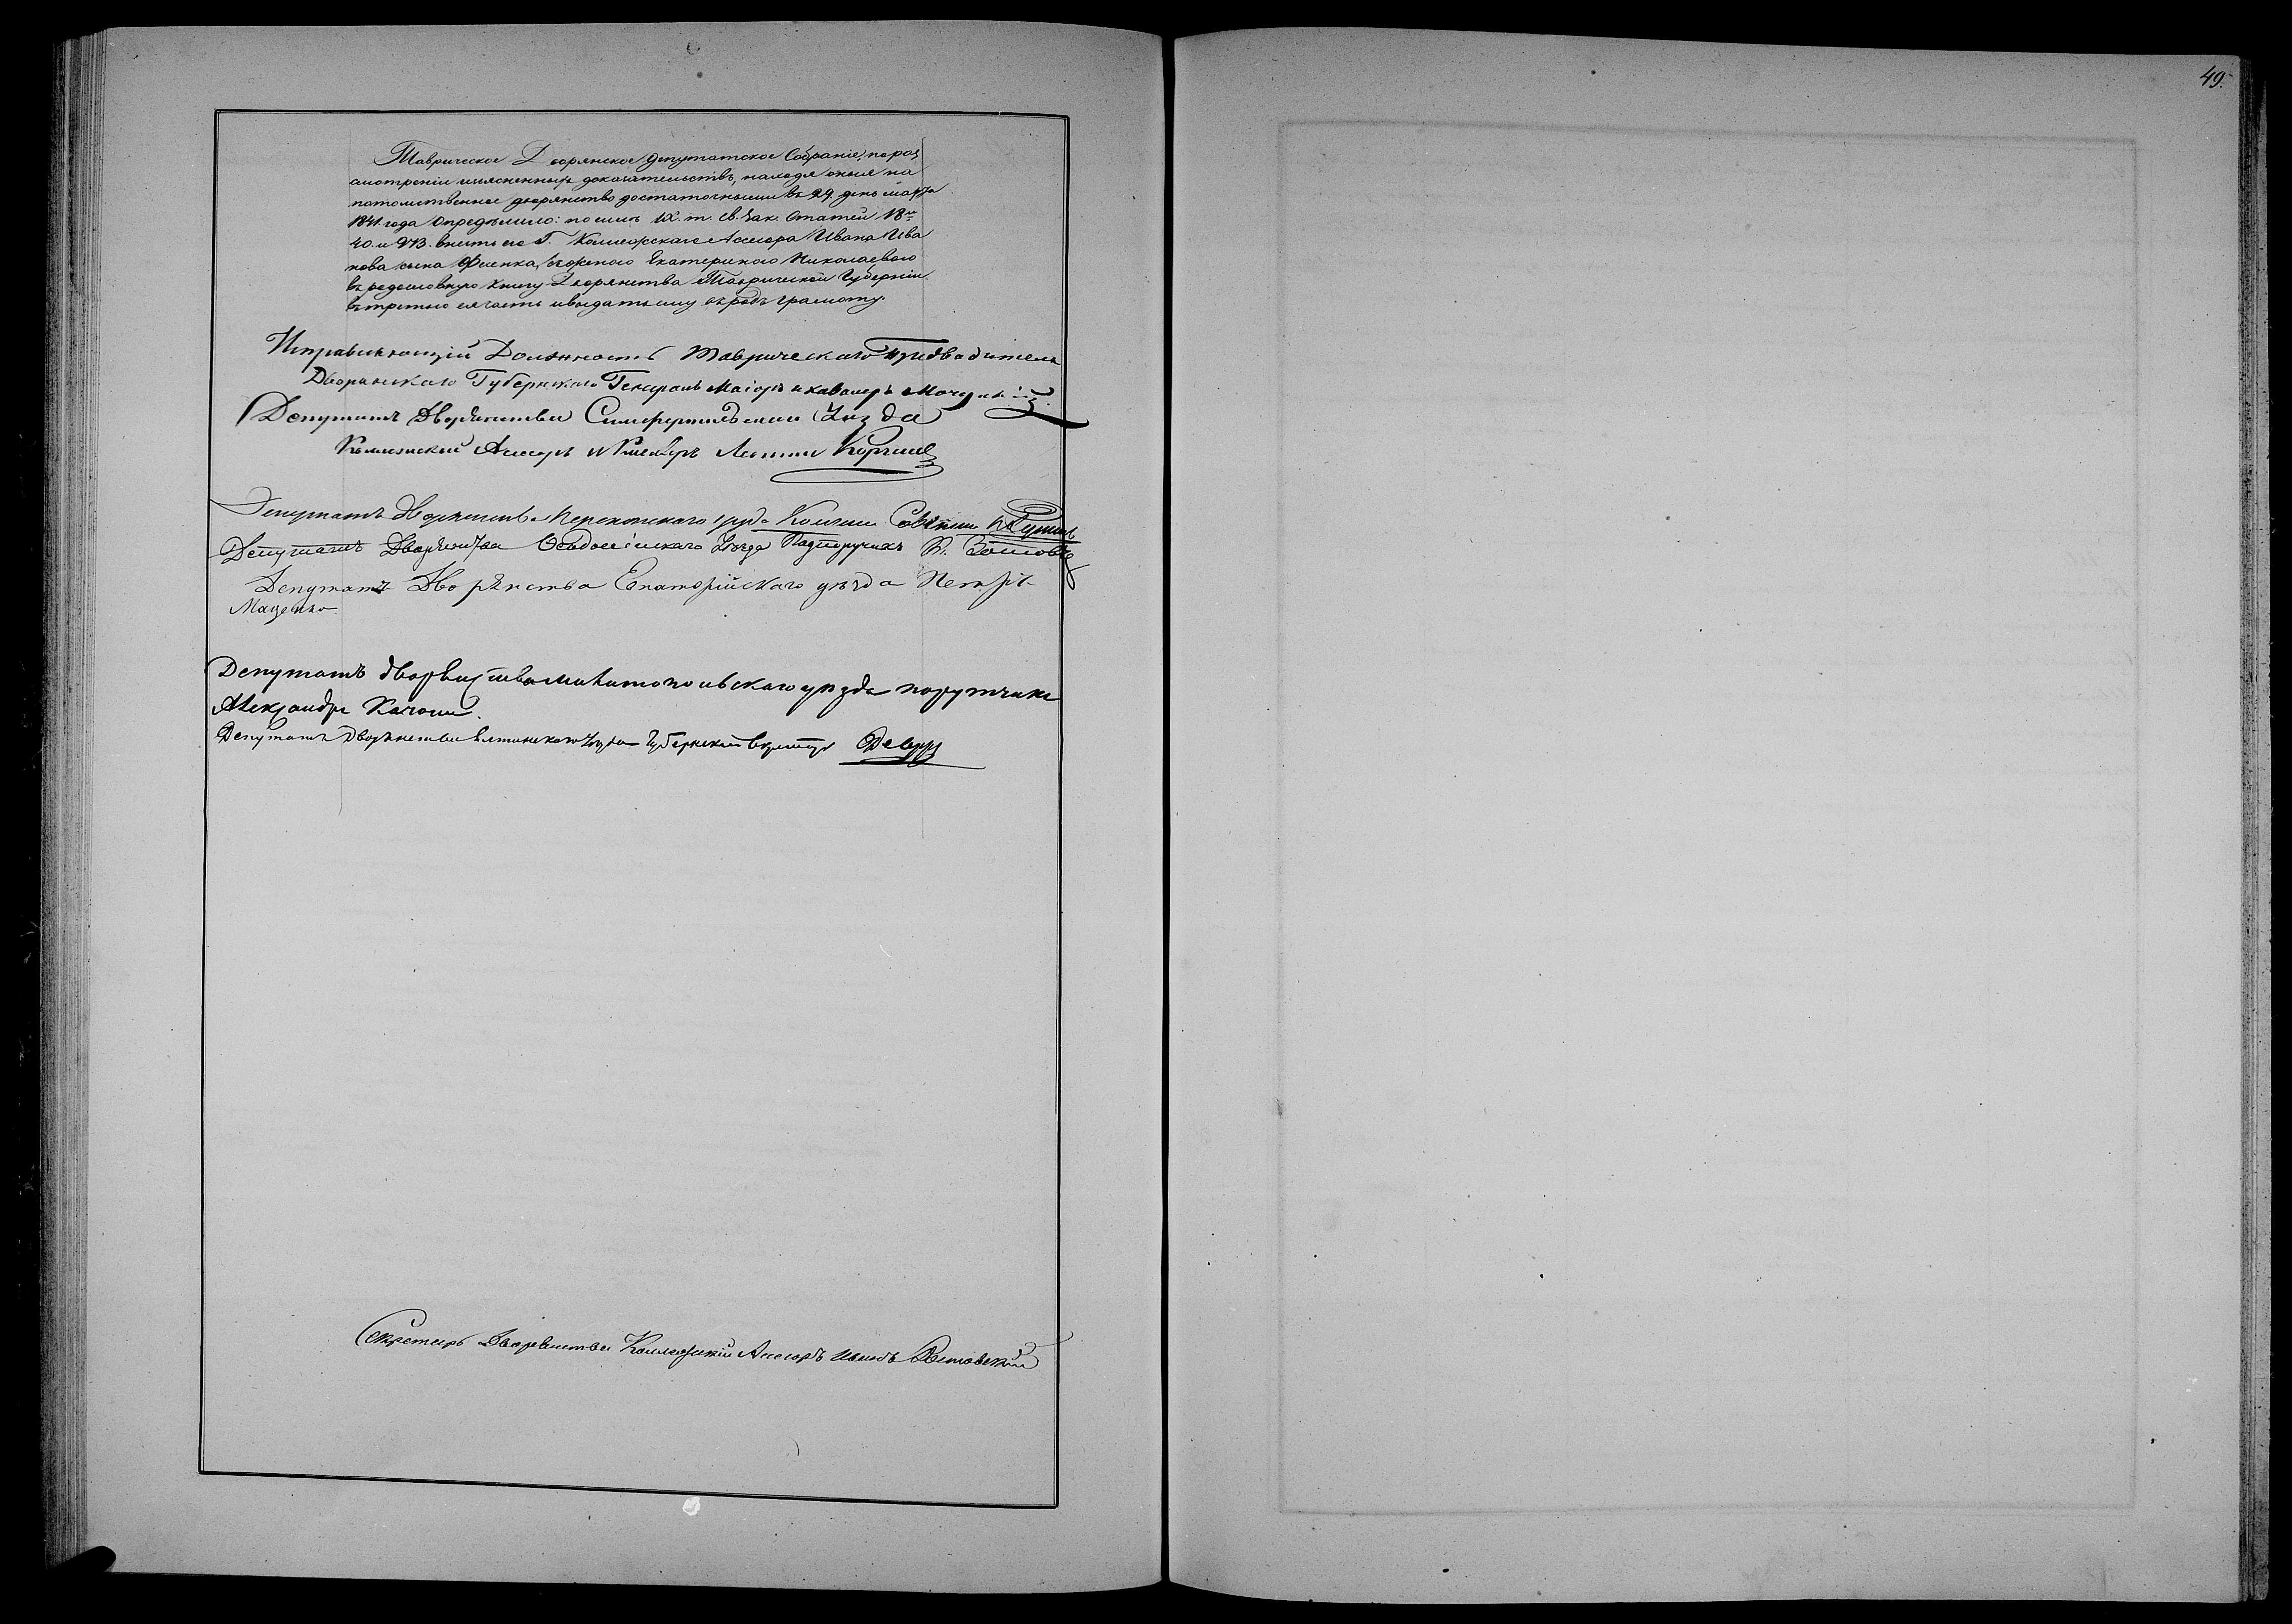 49.
Таврическое Дворянское Депутатское Собраніе, по раз
смотреніи изъясненныхъ доказательствъ, находя оныя на
потомственное дворянство достаточными въ 29. день марта
1841. года Определило: по силѣ IX. т. Св. Зак. Статей 18
40. и внесть его Г. Коллежскаго Ассесора Ивана Ива
нова сына съ женою Екатериною Николаевою
въ родословную книгу Дворянства Таврической Губерніи
въ третью ея часть и выдать ему на родъ грамоту.
Исправляющій Должность Таврическаго Предводителя
Дворянскаго Губернскаго Генералъ Маіоръ и кавалеръ
Депутатъ Дворянства Симферопольскаго Уѣзда
Коллежскій Ассесоръ и Кавалеръ
Депутатъ Дворянства Перекопскаго уѣзда Коллеж. Совѣтник
Депутатъ Дворянства Ѳеодосійскаго Уѣзда Подпоручикъ
Депутатъ Дворянства Евпаторійскаго уѣзда Петръ
Маценко
Депутатъ дворянства мелитопольскаго уезда поручикъ
Александръ
Депутатъ Дворянства Ялтинскаго Уѣзда Губернскій Секретарь
Секретарь Дворянства Коллежскій Ассесоръ